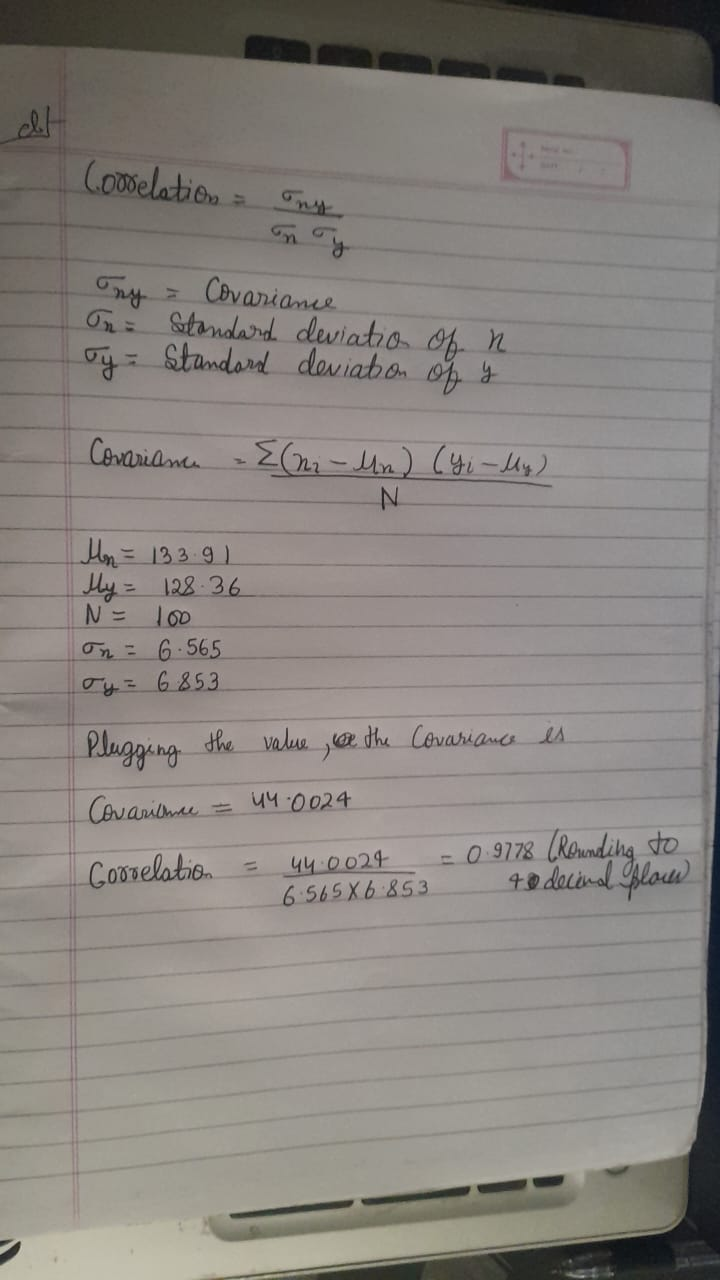 d)
Correlation = σny / σn σy
σny = Covariance
σn = Standard deviation of n
σy = Standard deviation of y
Covariance = Σ(ni - μn) (yi - μy) / N
μn = 133.91
μy = 128.36
N = 100
σn = 6.565
σy = 6.853
Plugging the value, the Covariance is
Covariance = 44.0024
Correlation = 44.0024 / 6.565 X 6.853 = 0.9778 (Rounding to
4 decimal places)